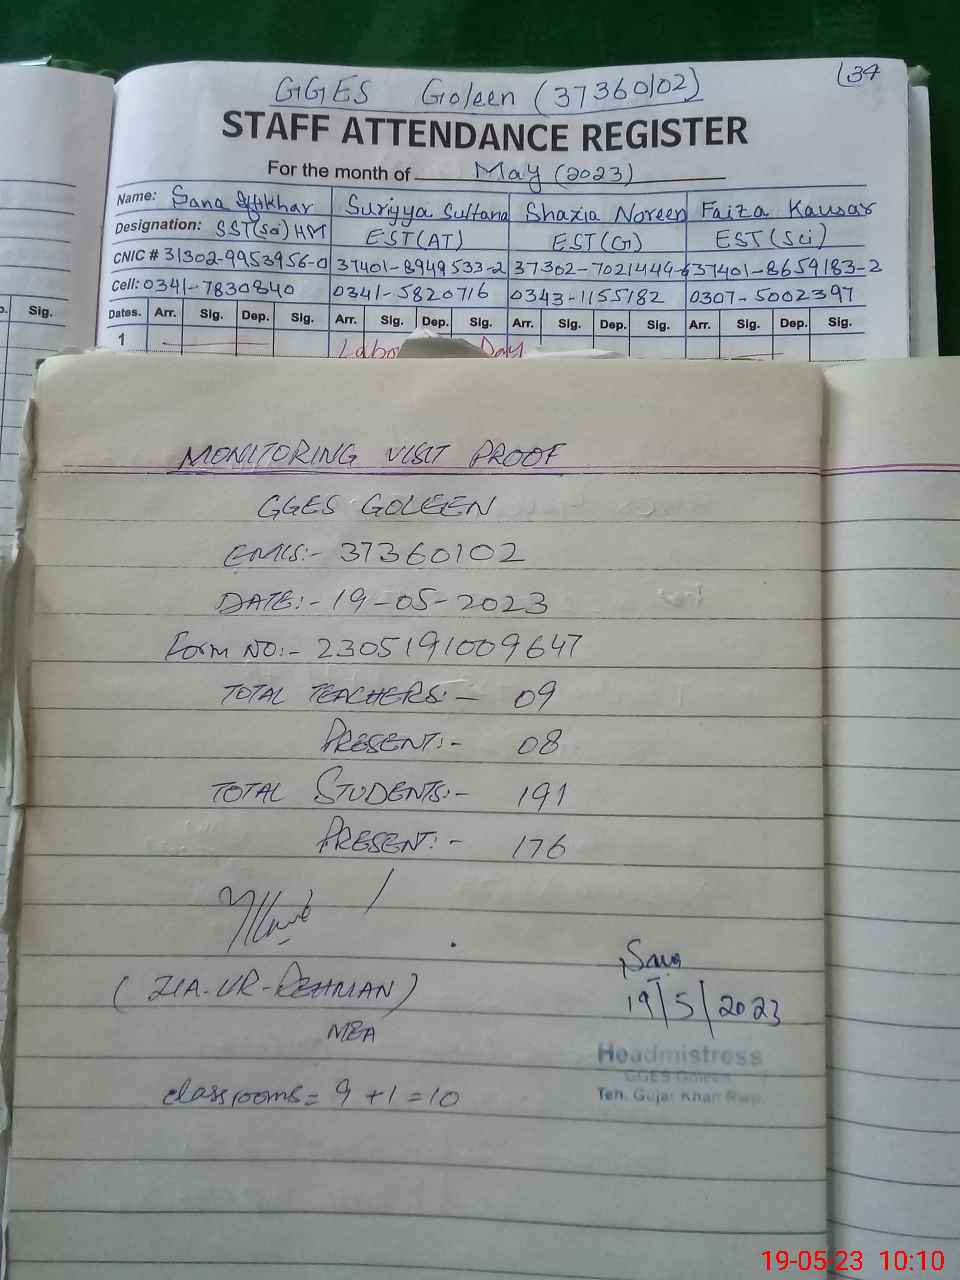 (34
GGES Goleen (37360102)
STAFF ATTENDANCE REGISTER
For the month of May (2023)
Name: Sana Iftikhar Suriyya Sultana Shazia Noreen Faiza Kausar
Designation: SST(Sci) HM EST(AT) EST(G) EST(Sci)
CNIC # 31302-9953956-0 37401-8949533-2 37302-7021444-6 37401-8659183-2
Cell: 0341-7830840 0341-5820716 0343-1155182 0307-5002397
Sig. Dates. Arr. Sig. Dep. Sig. Arr. Sig. Dep. Sig. Arr. Sig. Dep. Sig. Arr. Sig. Dep. Sig.
1 Labo Day
MONITORING VISIT PROOF
GGES GOLEEN
EMIS:- 37360102
DATE:- 19-05-2023
Form NO:- 2305191009647
TOTAL TEACHERS:- 09
PRESENT:- 08
TOTAL STUDENTS:- 191
PRESENT:- 176
(ZIA-UR-REHMAN)
MEA
Sana
19/5/2023
Headmistress
GGES Goleen
Teh. Gujar Khan Rwp.
classrooms = 9 + 1 = 10
19-05-23 10:10